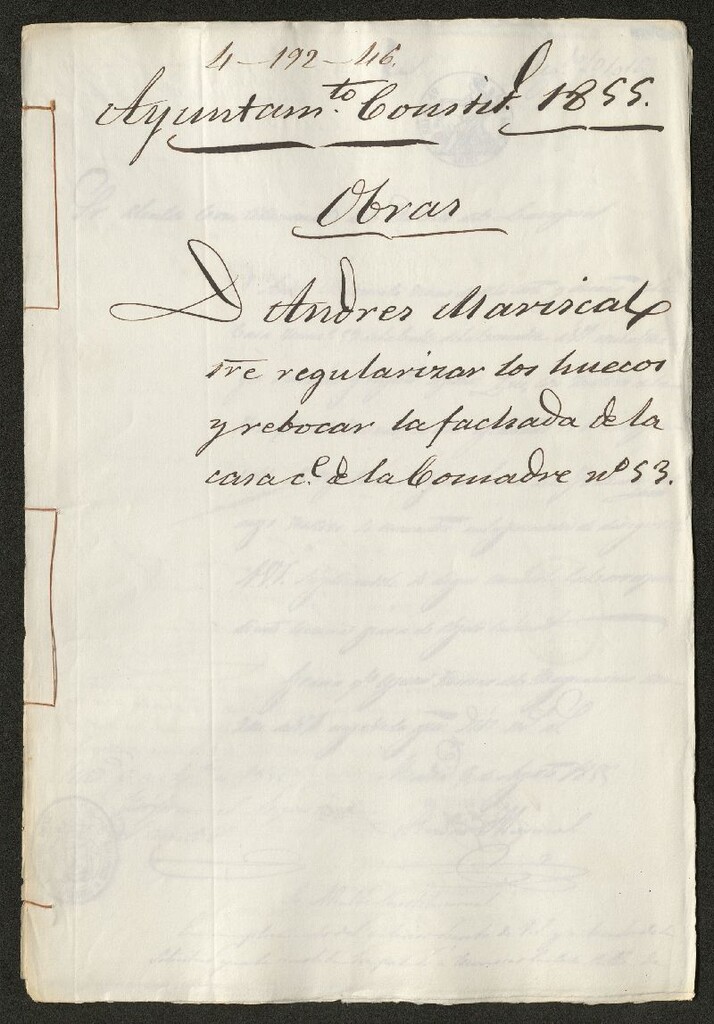 4-192-46.
Ayuntam.to Constit.l 1855.
Obras
D Andres Mariscal
sre regularizar los huecos
y rebocar la fachada de la
casa c.e de la Comadre nº 53.